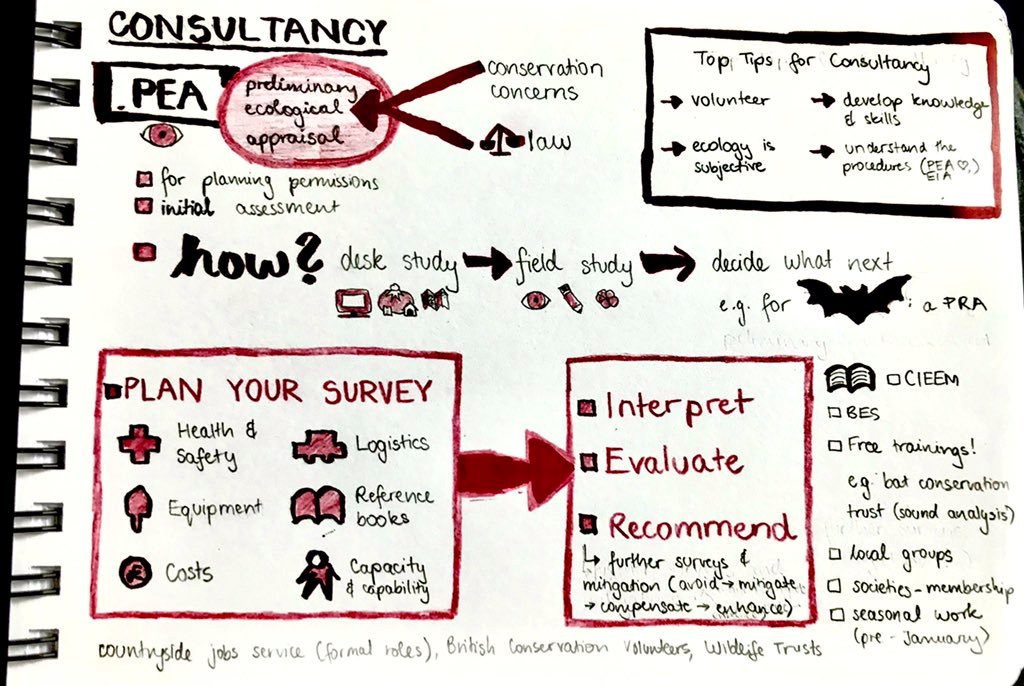 CONSULTANCY
PEA
preliminary
ecological
appraisal
conservation
concerns
law
for planning permissions
initial assessment
Top Tips for Consultancy
volunteer
develop knowledge
& skills
ecology is
subjective
understand the
procedures (PEA ♡,
EIA
how? desk study → field study → decide what next
e.g. for : a PRA
PLAN YOUR SURVEY
Health &
Safety
Logistics
Equipment
Reference
books
Costs
Capacity
& capability
Interpret
Evaluate
Recommend
↳ further surveys &
mitigation (avoid → mitigate
→ compensate → enhance)
CIEEM
BES
Free trainings!
e.g. bat conservation
trust (sound analysis)
local groups
societies - membership
seasonal work
(pre - January)
countryside jobs service (formal roles), British Conservation Volunteers, Wildlife Trusts